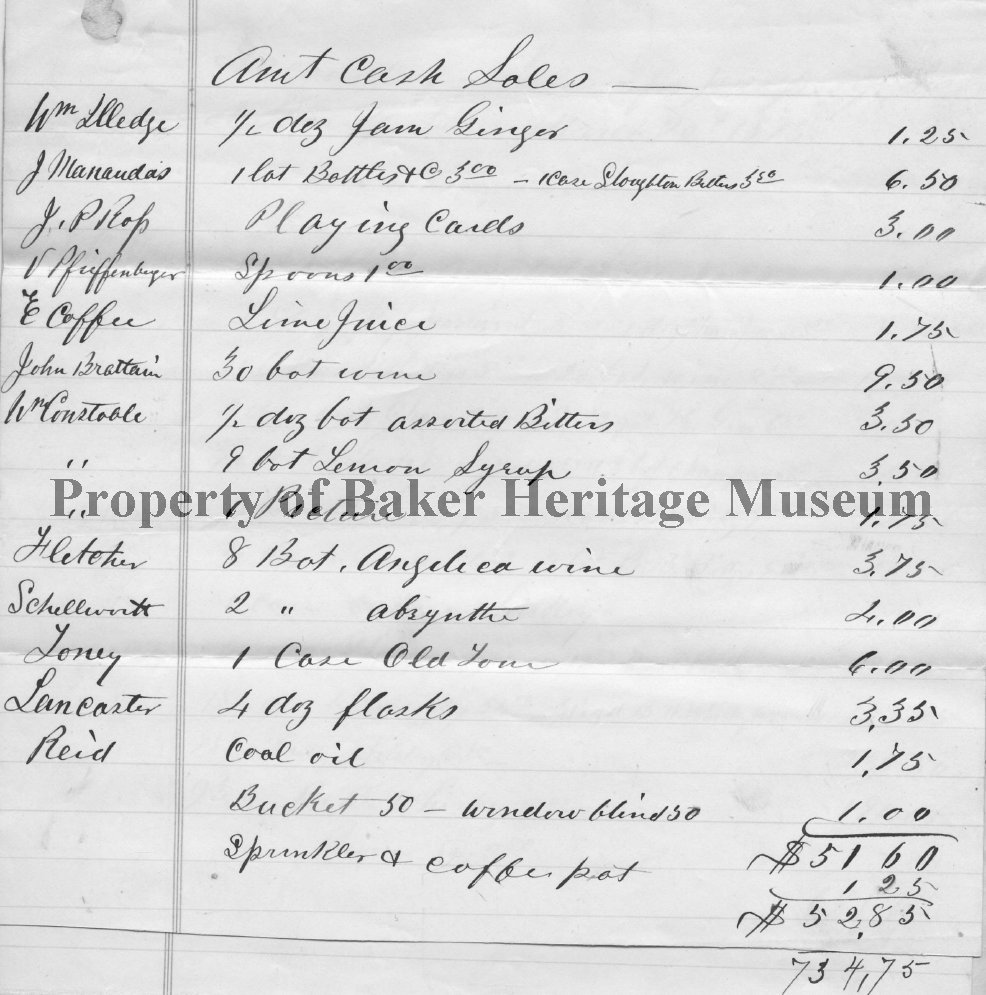 Amt Cash Sales
Wm Illedge 1/2 doz Jam Ginger 1.25
J Manaudas 1 lot Bottles & C 3.00 - 1 Case Stoughton Bitters 3.50 6.50
J. P Ross Playing Cards 3.00
V Pfiffenberger Spoons 1.00 1.00
E Coffee Lime Juice 1.75
John Brattain 30 bot wine 9.50
Wm Constable 1/2 doz bot assorted Bitters 3.50
" 9 bot Lemon Syrup 3.50
Property of Baker Heritage Museum
" Picture 1.75
Fletcher 8 Bot. Angelica wine 3.75
Schellworth 2 " absynthe 4.00
Toney 1 Case Old Tom 6.00
Lancaster 4 doz flasks 3.35
Reid Coal oil 1.75
Bucket 50 - window blind 50 1.00
$51 60
Sprinkler & coffee pot 1 25
$52.85
734.75